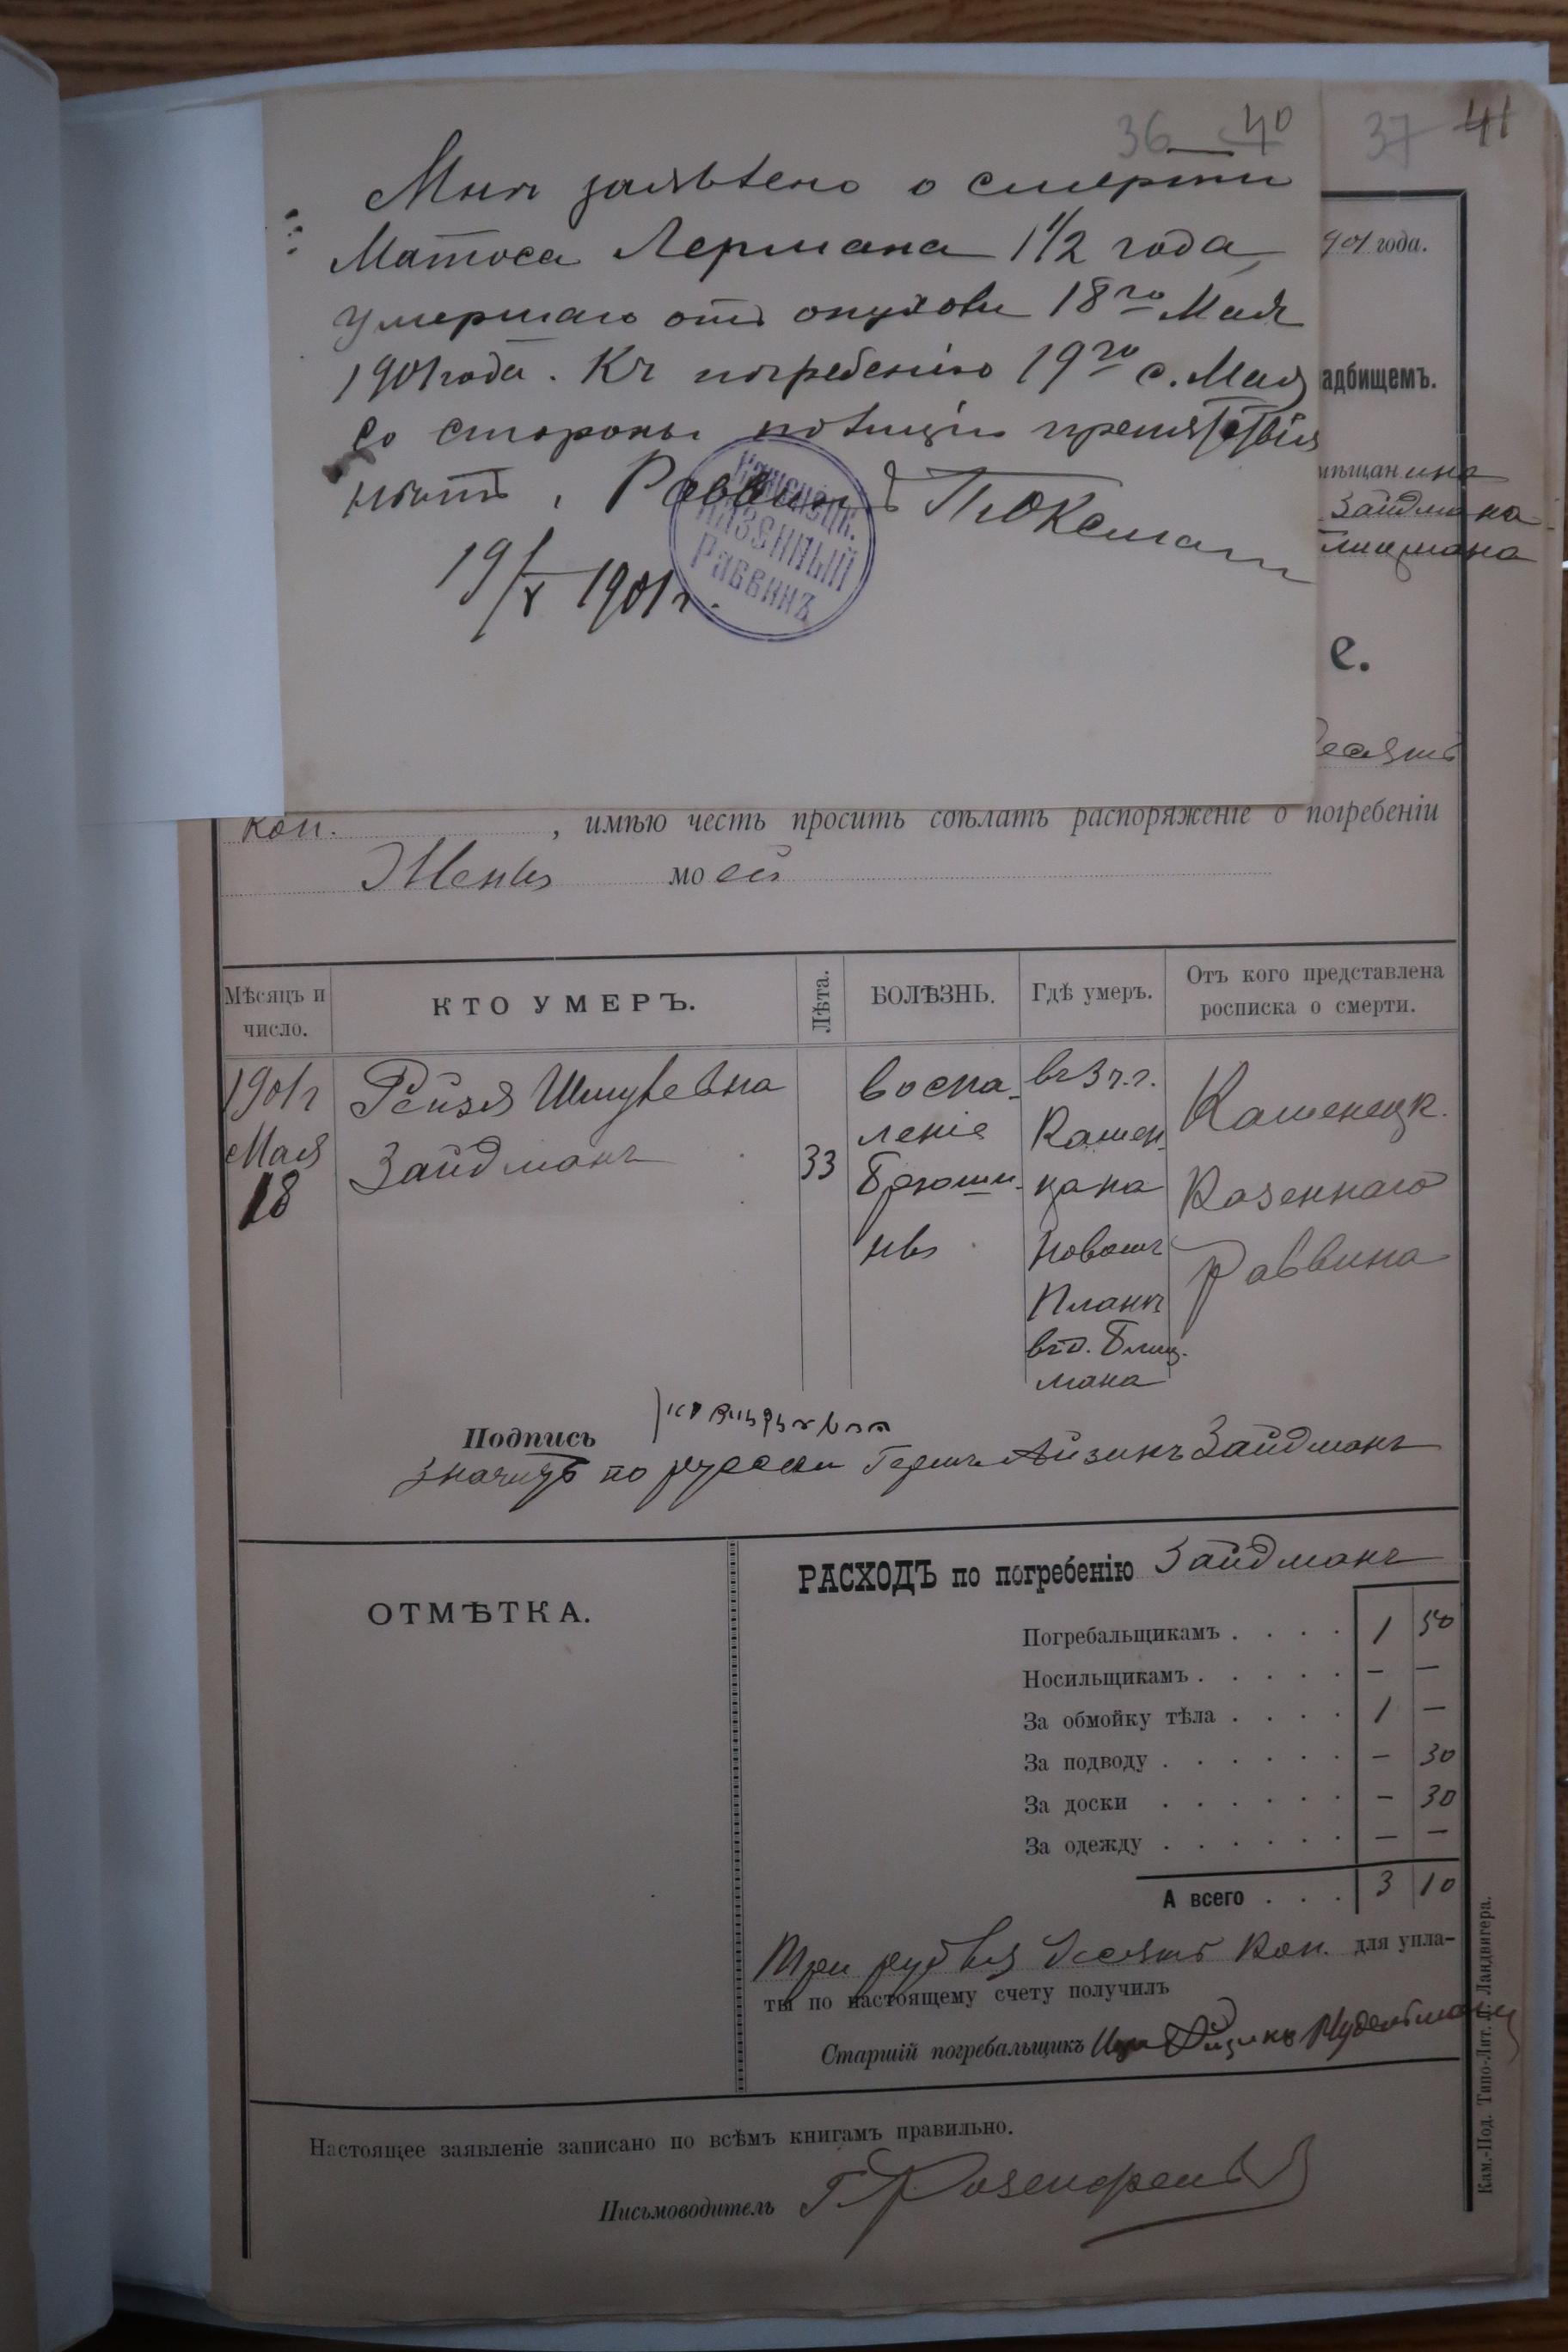 36 40
37 41
Мнѣ заявлено о смерти
Матоса Лермана 1 1/2 года
умершаго отъ опухоли 18го Мая
1901 года. Къ погребенію 19го с. Мая
со стороны полиціи препятствія
нѣтъ. Раввинъ
19/V 1901 г.
Каменецк.
Казенный
Раввинъ
901 года.
адбищемъ.
мѣщанина
Зайдмана
лицмана
е.
десять
коп. , имѣю честь просить сдѣлать распоряженіе о погребеніи
Жены моей
Мѣсяцъ и число.
КТО УМЕРЪ.
Лѣта.
БОЛѢЗНЬ.
Гдѣ умеръ.
Отъ кого представлена росписка о смерти.
1901 г
Мая
18
Рейзя Шмулевна
Зайдманъ
33
воспа-
леніе
брюши-
ны
въ 3 ч. г.
Камен
цана
Новомъ
Планѣ
въ д. Блиц-
мана
Каменецк.
Казеннаго
Раввина
Подпись
значитъ по русски Гершъ Айзикъ Зайдманъ
ОТМѢТКА.
РАСХОДЪ по погребенію Зайдманъ
Погребальщикамъ . . . . 1 50
Носильщикамъ . . . . . — —
За обмойку тѣла . . . . 1 —
За подводу . . . . . . — 30
За доски . . . . . . — 30
За одежду . . . . . . — —
А всего . . . 3 10
Три рубля десять коп. для упла-
ты по настоящему счету получилъ
Старшій погребальщикъ
Настоящее заявленіе записано по всѣмъ книгамъ правильно.
Письмоводитель Г. Розенфельд
Кам.-Под. Типо-Лит. Д. Ландвигера.